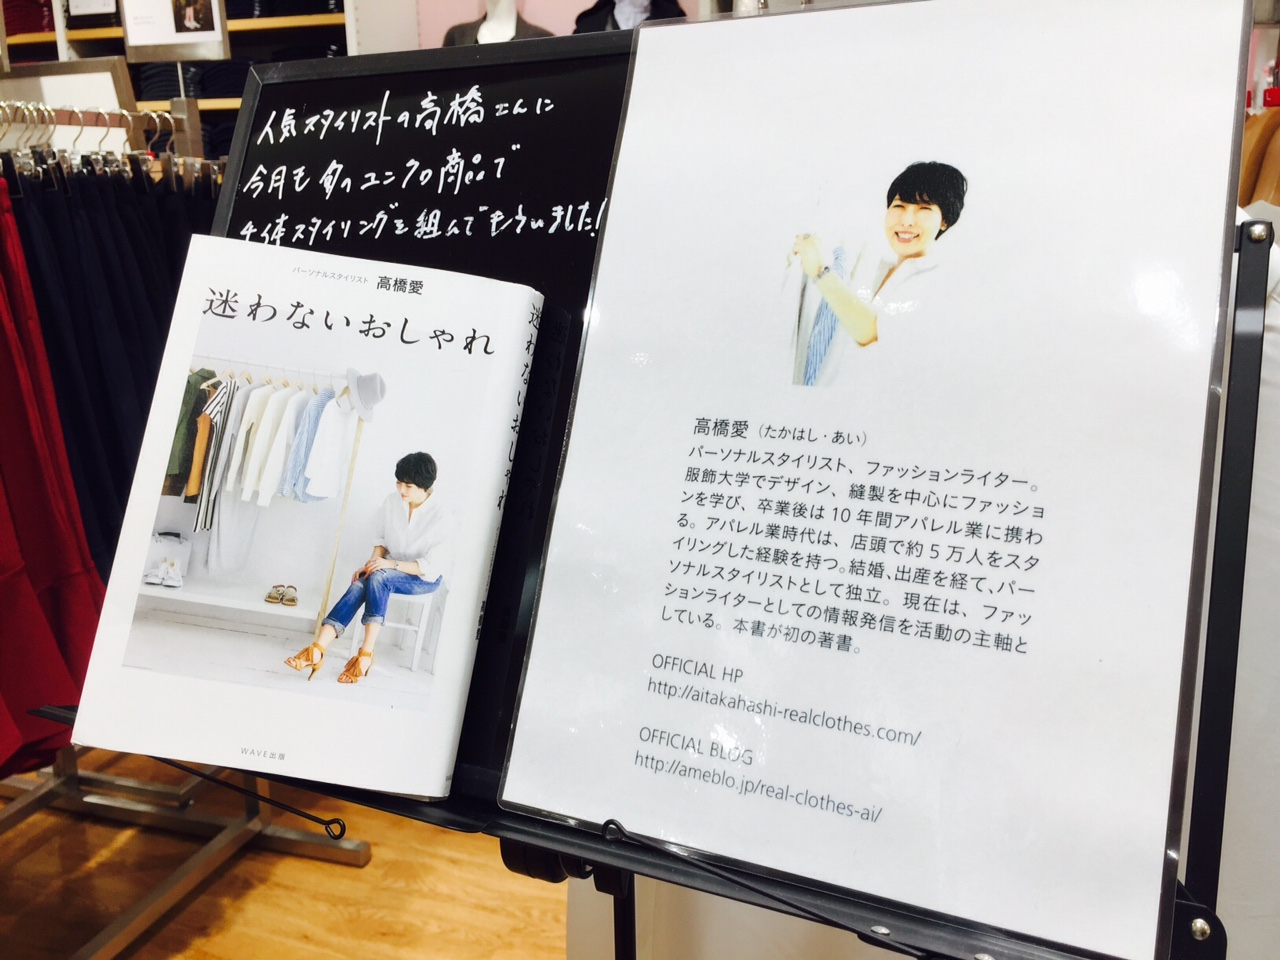 人気スタイリストの高橋さんに
今月も旬のユニクロ商品で
4体スタイリングを組んでもらいました!
パーソナルスタイリスト 高橋愛
迷わないおしゃれ
WAVE出版
迷わないおしゃれ
高橋愛（たかはし・あい）
パーソナルスタイリスト、ファッションライター。
服飾大学でデザイン、縫製を中心にファッショ
ンを学び、卒業後は10年間アパレル業に携わ
る。アパレル業時代は、店頭で約5万人をスタ
イリングした経験を持つ。結婚、出産を経て、パー
ソナルスタイリストとして独立。現在は、ファッ
ションライターとしての情報発信を活動の主軸と
している。本書が初の著書。
OFFICIAL HP
http://aitakahashi-realclothes.com/
OFFICIAL BLOG
http://ameblo.jp/real-clothes-ai/